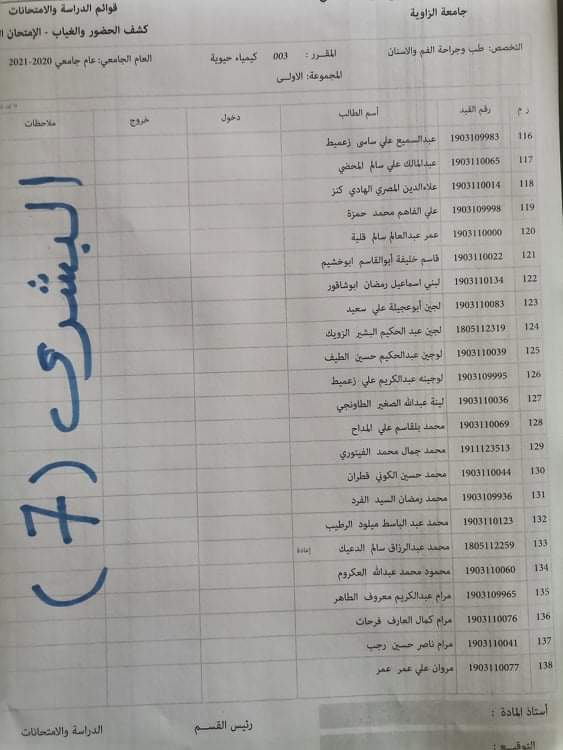 قوائم الدراسة والامتحانات
جامعة الزاوية
كشف الحضور والغياب - الإمتحان
التخصص: طب وجراحة الفم والاسنان
المقرر : 003 كيمياء حيوية
العام الجامعي: عام جامعي 2020-2021
المجموعة: الاولى
ر م رقم القيد أسم الطالب دخول خروج ملاحظات
116 1903109983 عبدالسميع علي ساسى زعميط
117 1903110065 عبدالمالك علي سالم المحضي
118 1903110014 علاءالدين المصري الهادي كنز
119 1903109998 علي الفاهم محمد حمزة
120 1903110000 عمر عبدالعالم سالم قلية
121 1903110022 قاسم خليفة أبوالقاسم ابوخشيم
122 1903110134 لبني اسماعيل رمضان ابوشاقور
123 1903110083 لجين أبوعجيلة علي سعيد
124 1805112319 لجين عبد الحكيم البشير الزويك
125 1903110039 لوجين عبدالحكيم حسين الطيف
126 1903109995 لوجينه عبدالكريم علي زعميط
127 1903110036 لينة عبدالله الصغير الطاونجي
128 1903110069 محمد بلقاسم علي المداح
129 1911123513 محمد جمال محمد الفيتوري
130 1903110044 محمد حسين الكوني قطران
131 1903109936 محمد رمضان السيد الفرد
132 1903110123 محمد عبد الباسط ميلود الرطيب
133 1805112259 محمد عبدالرزاق سالم الدعيك إعادة
134 1903110060 محمود محمد عبدالله العكروم
135 1903109965 مرام عبدالكريم معروف الطاهر
136 1903110076 مرام كمال العارف فرحات
137 1903110041 مرام ناصر حسين رجب
138 1903110077 مروان علي عمر عمر
البشرى (7)
أستاذ المادة :
رئيس القسم
الدراسة والامتحانات
التوقيع :